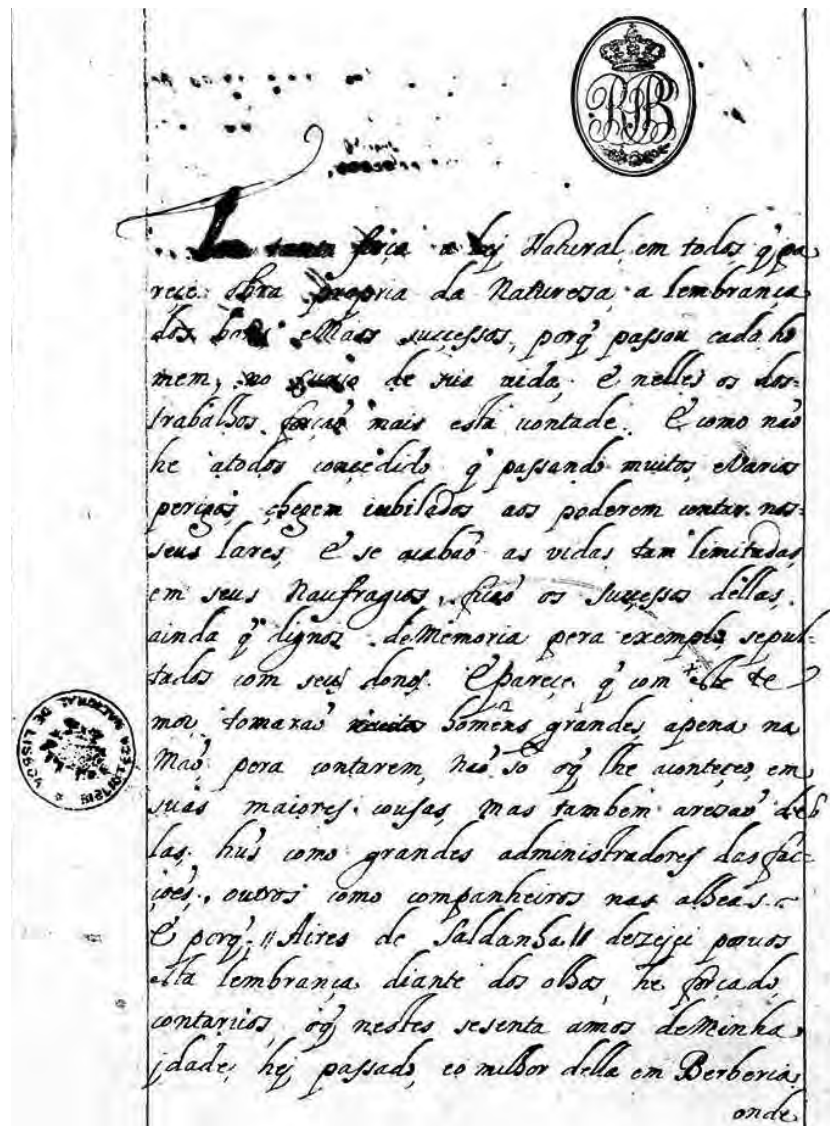 tanta força a lej Natural, em todos q̃ pa
rece obra propria da Naturesa a lembrança
dos bons e Maos successos, porq̃ passou cada ho
mem, no curso de sua uida, E nelles os dos
trabalhos forção mais esta uontade. E como não
he atodos concedido q̃ passando muitos e Varios
perigos, chegem iubilados aos poderem contar nos
seus lares, E se acabão as vidas tam limitadas,
em seus Naufragios, ficão os successos dellas,
ainda q̃ dignos de Memoria pera exemplo, sepul-
tados com seus donos. E parece q̃ com este te
mor tomarão muitos homẽns grandes, apena na
Mão, pera contarem, não só oq̃ lhe aconteçeo, em
suas maiores cousas, mas tambem aresão del
las, hũs como grandes administradores das fac-
ções, outros como companheiros nas alheas.
E porq̃ // Aires de Saldanha // dezejei poruos
esta lembrança diante dos olhos, he forçado
contaruos, oq̃ nestes sesenta annos de Minha
jdade, hej passado, eo milhor della em Berberia,
onde
BIBLIOTHECA NACIONAL DE LISBOA